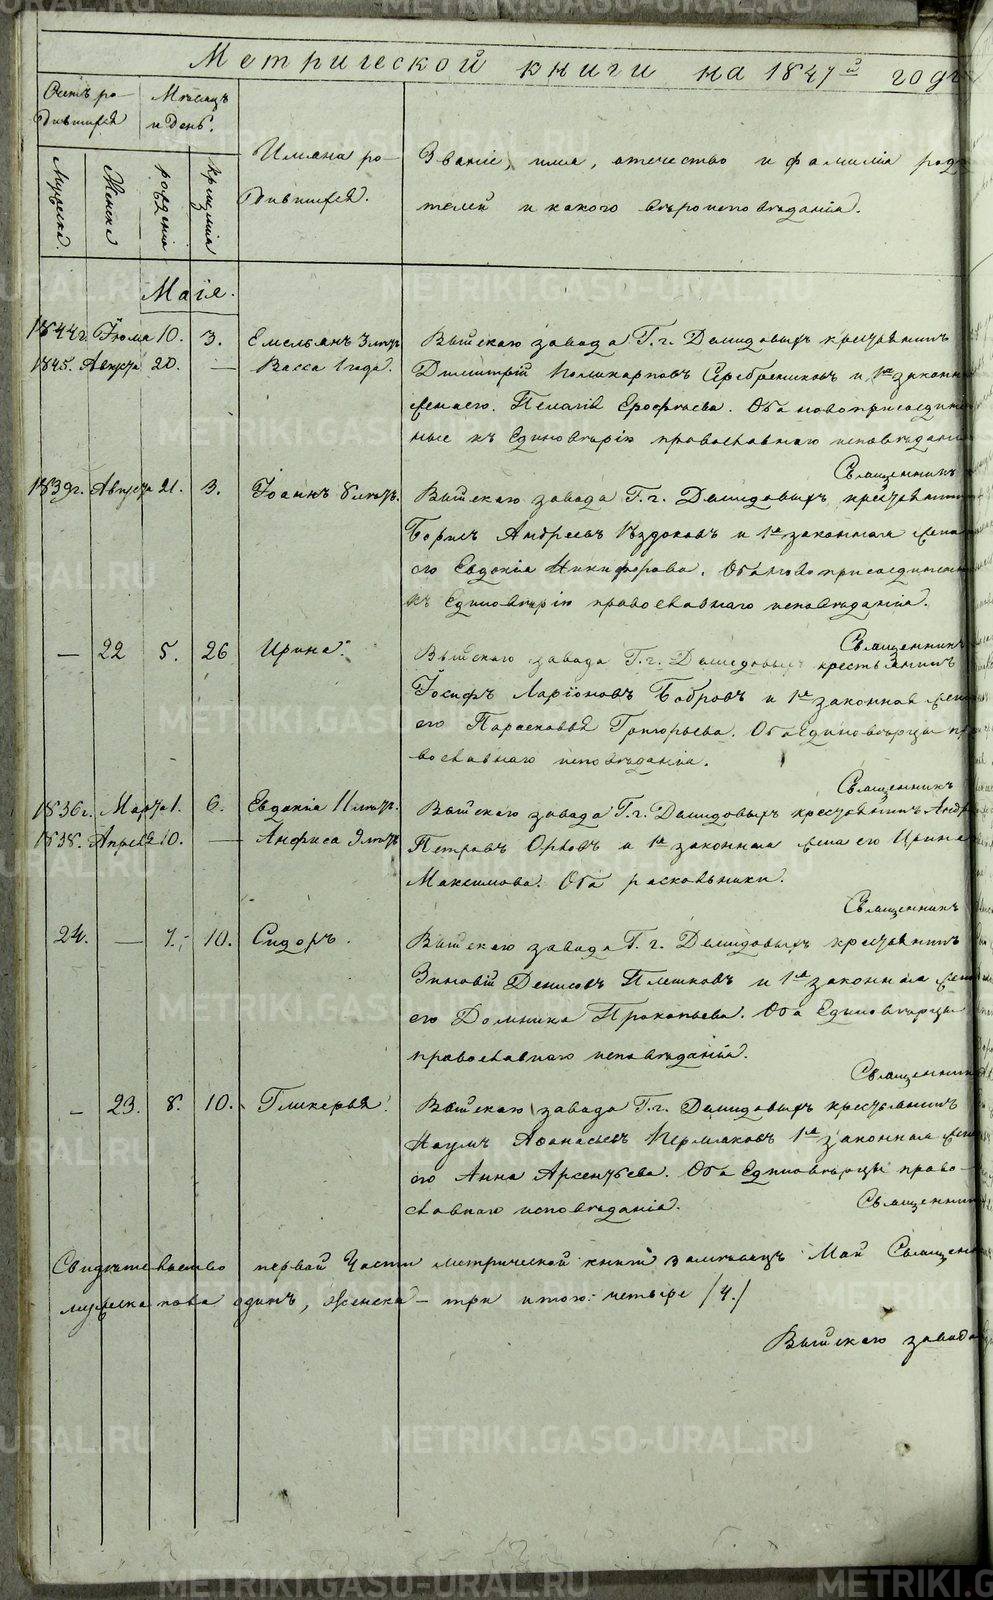 Метрической книги на 1847й годъ
Счетъ ро-
дившихся
Мѣсяцъ
и День.
Имяна ро-
дившихся.
Званіе, имя, отечество и фамилія роди
телей и какого вѣроисповѣданія.
Мужеска.
Женска
рожденія
крещенія
Маія.
1844г. Іюля 10. 3. Емельянъ 3 лѣтъ Выйскаго завода Г.г. Демидовыхъ крестьянинъ
1845. Августа 20. — Васса 1 года. Димитрій Поликарповъ Серебряниковъ и 1я законная
жена его Пелагія Ерофѣева. Оба новоприсоединен
ные къ Единовѣрію православнаго исповѣданія
Священникъ
1839г. Августа 21. 3. Іоаннъ 8 лѣтъ. Выйскаго завода Г.г. Демидовыхъ крестьянинъ
Борисъ Андреевъ Ѣздоковъ и 1я законная жена
его Евдокія Никифорова. Оба новоприсоединен
къ Единовѣрію православнаго исповѣданія.
Священникъ
— 22 5. 26 Ирина. Выйскаго завода Г.г. Демидовыхъ крестьянинъ
Іосифъ Ларіоновъ Бобровъ и 1я законная жена
его Парасковья Григорьева. Оба Единовѣрцы пра
вославнаго исповѣданія.
Священникъ
1836г. Марта 1. 6. Евдокія 11 лѣтъ. Выйскаго завода Г.г. Демидовыхъ крестьянинъ Андр
1838. Апреля 10. — Анфиса 9 лѣтъ Петровъ Орловъ и 1я законная жена его Ирина
Максимова. Оба расколники.
Священникъ
24. — 7. 10. Сидоръ. Выйскаго завода Г.г. Демидовыхъ крестьянинъ
Зиновій Денисовъ Плешковъ и 1я законная жена
его Домника Прокопьева. Оба Единовѣрцы
православнаго исповѣданія.
Священникъ
— 23. 8. 10. Гликерья. Выйскаго завода Г.г. Демидовыхъ крестьянинъ
Наумъ Афанасьевъ Пермяковъ 1я законная жена
его Анна Арсентьева. Оба Единовѣрцы право-
славнаго исповѣданія.
Священникъ
первой части метрической книги за мѣсяцъ Май Священ
мужеска пола одинъ, женска — три итого: четыре /4./
Выйскаго завода
METRIKI.GASO-URAL.RU